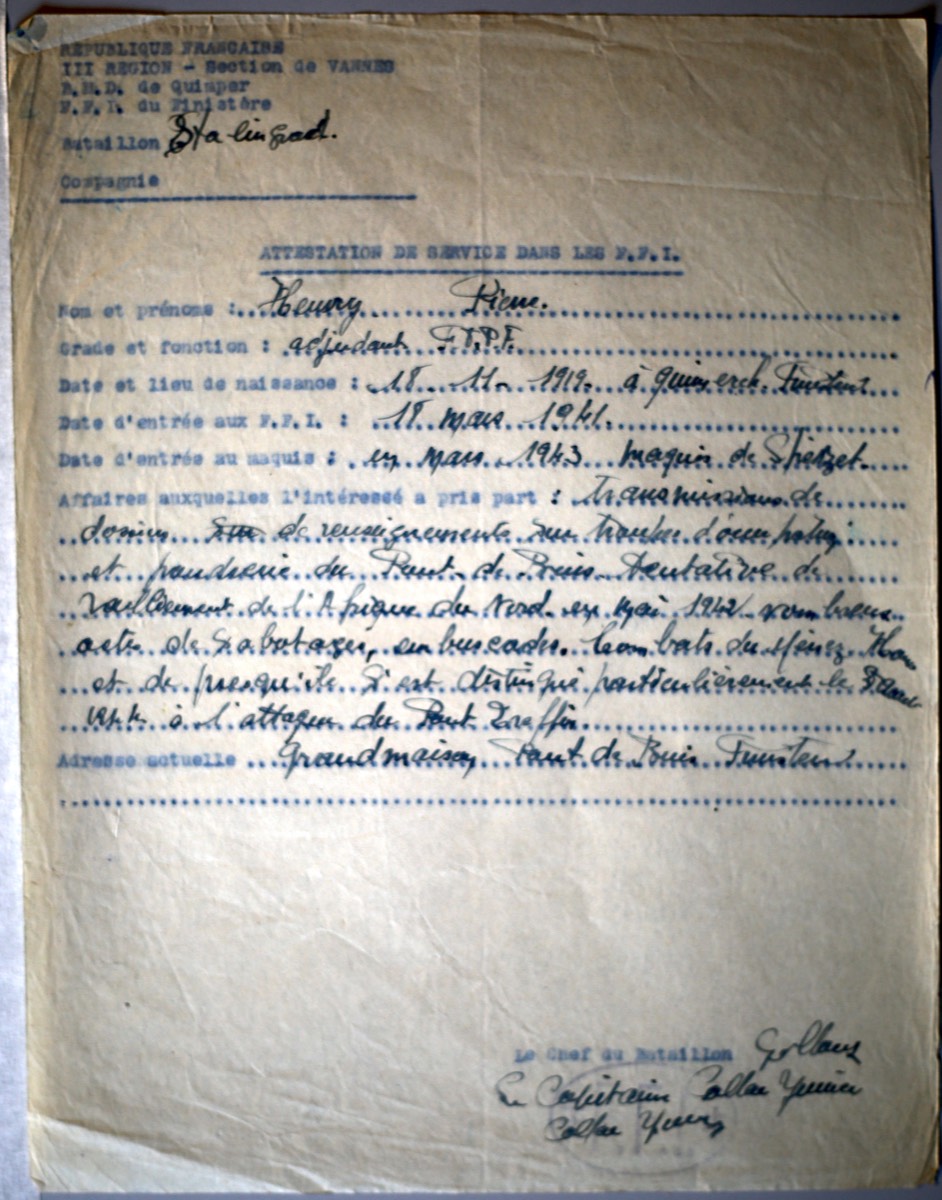 REPUBLIQUE FRANCAISE
III REGION - Section de VANNES
B.M.D. de Quimper
F.F.I. du Finistère
Bataillon Stalingrad.
Compagnie
ATTESTATION DE SERVICE DANS LES F.F.I.
Nom et prénoms : Henry Pierre.
Grade et fonction : adjudant F.T.P.F.
Date et lieu de naissance : 18 11 1919 à Quimerch Finistere
Date d'entrée aux F.F.I. : 18 mars 1941.
Date d'entrée au maquis : en mars 1943 maquis de
Affaires auxquelles l'intéressé a pris part : transmissions de
dossiers de renseignements sur troupes d'occupation
et poudrerie du Pont de Buis. Tentative de
ralliement de l'Afrique du Nord en Mai 1942 nombreux
actes de sabotages, embuscades. Combats du Ménez Hom
et de presqu'ile S'est distingué particulièrement le
à l'attaque du Pont
Adresse actuelle Grandmaison Pont de Buis Finistere
Le Chef du Bataillon
Le Capitaine